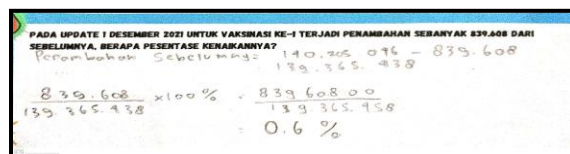 PADA UPDATE 1 DESEMBER 2021 UNTUK VAKSINASI KE-1 TERJADI PENAMBAHAN SEBANYAK 839.608 DARI
SEBELUMNYA, BERAPA PESENTASE KENAIKANNYA?
Perombahan Sebelumnya = 140.205.046 - 839.608
= 139.365.438
839.608 / 139.365.438 x 100 % = 839 608 00 / 139.365.438
= 0.6 %